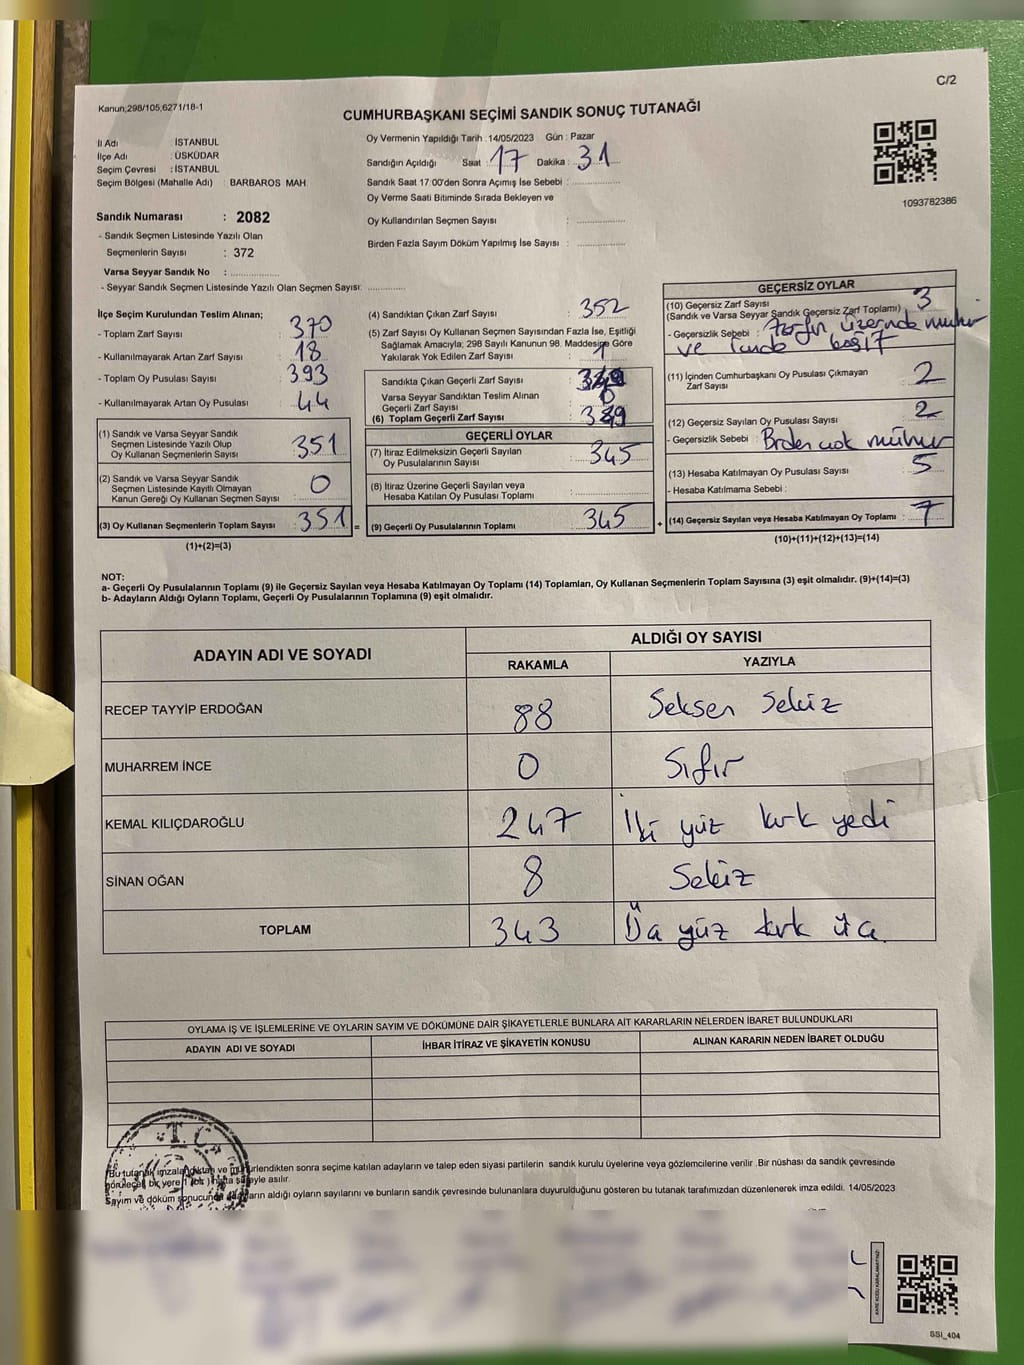 C/2
Kanun,298/105,6271/18-1
CUMHURBAŞKANI SEÇİMİ SANDIK SONUÇ TUTANAĞI
İl Adı : İSTANBUL
İlçe Adı : ÜSKÜDAR
Seçim Çevresi : İSTANBUL
Seçim Bölgesi (Mahalle Adı) : BARBAROS MAH.
Sandık Numarası : 2082
- Sandık Seçmen Listesinde Yazılı Olan
Seçmenlerin Sayısı : 372
Varsa Seyyar Sandık No :
- Seyyar Sandık Seçmen Listesinde Yazılı Olan Seçmen Sayısı:
Oy Vermenin Yapıldığı Tarih : 14/05/2023 Gün : Pazar
Sandığın Açıldığı Saat : 17 Dakika : 31
Sandık Saat 17:00'den Sonra Açımış İse Sebebi :
Oy Verme Saati Bitiminde Sırada Bekleyen ve
Oy Kullandırılan Seçmen Sayısı :
Birden Fazla Sayım Döküm Yapılmış İse Sayısı :
1093782386
İlçe Seçim Kurulundan Teslim Alınan;
- Toplam Zarf Sayısı : 370
- Kullanılmayarak Artan Zarf Sayısı : 18
- Toplam Oy Pusulası Sayısı : 393
- Kullanılmayarak Artan Oy Pusulası : 44
(1) Sandık ve Varsa Seyyar Sandık
Seçmen Listesinde Yazılı Olup
Oy Kullanan Seçmenlerin Sayısı : 351
(2) Sandık ve Varsa Seyyar Sandık
Seçmen Listesinde Kayıtlı Olmayan
Kanun Gereği Oy Kullanan Seçmen Sayısı : 0
(3) Oy Kullanan Seçmenlerin Toplam Sayısı : 351 =
(1)+(2)=(3)
(4) Sandıktan Çıkan Zarf Sayısı : 352
(5) Zarf Sayısı Oy Kullanan Seçmen Sayısından Fazla İse, Eşitliği
Sağlamak Amacıyla; 298 Sayılı Kanunun 98. Maddesine Göre
Yakılarak Yok Edilen Zarf Sayısı : 1
Sandıkta Çıkan Geçerli Zarf Sayısı :
Varsa Seyyar Sandıktan Teslim Alınan
Geçerli Zarf Sayısı : 0
(6) Toplam Geçerli Zarf Sayısı :
GEÇERLİ OYLAR
(7) İtiraz Edilmeksizin Geçerli Sayılan
Oy Pusulalarının Sayısı : 345
(8) İtiraz Üzerine Geçerli Sayılan veya
Hesaba Katılan Oy Pusulası Toplamı :
(9) Geçerli Oy Pusulalarının Toplamı : 345 +
GEÇERSİZ OYLAR
(10) Geçersiz Zarf Sayısı
(Sandık ve Varsa Seyyar Sandık Geçersiz Zarf Toplamı) : 3
- Geçersizlik Sebebi : Zarfın üzerinde mühür
ve
(11) İçinden Cumhurbaşkanı Oy Pusulası Çıkmayan
Zarf Sayısı : 2
(12) Geçersiz Sayılan Oy Pusulası Sayısı : 2
- Geçersizlik Sebebi : Birden çok mühür
(13) Hesaba Katılmayan Oy Pusulası Sayısı : 5
- Hesaba Katılmama Sebebi :
(14) Geçersiz Sayılan veya Hesaba Katılmayan Oy Toplamı : 7
(10)+(11)+(12)+(13)=(14)
NOT:
a- Geçerli Oy Pusulalarının Toplamı (9) ile Geçersiz Sayılan veya Hesaba Katılmayan Oy Toplamı (14) Toplamları, Oy Kullanan Seçmenlerin Toplam Sayısına (3) eşit olmalıdır. (9)+(14)=(3)
b- Adayların Aldığı Oyların Toplamı, Geçerli Oy Pusulalarının Toplamına (9) eşit olmalıdır.
ADAYIN ADI VE SOYADI ALDIĞI OY SAYISI
RAKAMLA YAZIYLA
RECEP TAYYİP ERDOĞAN 88 Seksen Sekiz
MUHARREM İNCE 0 Sıfır
KEMAL KILIÇDAROĞLU 247 İki yüz kırk yedi
SİNAN OĞAN 8 Sekiz
TOPLAM 343 Üç yüz kırk üç
OYLAMA İŞ VE İŞLEMLERİNE VE OYLARIN SAYIM VE DÖKÜMÜNE DAİR ŞİKAYETLERLE BUNLARA AİT KARARLARIN NELERDEN İBARET BULUNDUKLARI
ADAYIN ADI VE SOYADI İHBAR İTİRAZ VE ŞİKAYETİN KONUSU ALINAN KARARIN NEDEN İBARET OLDUĞU
T.C.
Bu tutanak imzalandıktan ve mühürlendikten sonra seçime katılan adayların ve talep eden siyasi partilerin sandık kurulu üyelerine veya gözlemcilerine verilir. Bir nüshası da sandık çevresinde
görülecek bir yere 1 (bir) hafta süreyle asılır.
Sayım ve döküm sonucunda adayların aldığı oyların sayılarını ve bunların sandık çevresinde bulunanlara duyurulduğunu gösteren bu tutanak tarafımızdan düzenlenerek imza edildi. 14/05/2023
SSI_404